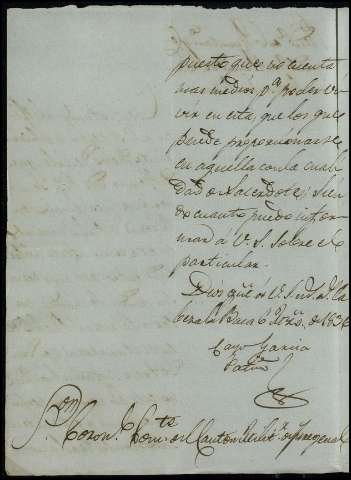 puesto que no cuenta
mas medios pª poder vi
vir en esta, que los que
puede proporcionarse
en aquella con la cuali
dad de Sacerdote; sien
do cuanto puedo infor
mar á V. S. sobre el
particular.
Dios güe a V. S. ms. as. Ca
beza la Baca 6 de 1836
Cayo Garcia
Sor. Coronl. Comte. del Canton Militr. de Fregenal